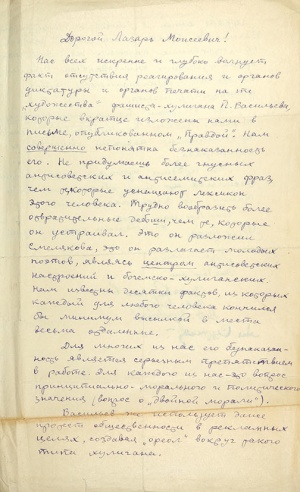 Дорогой Лазарь Моисеевич!
Нас всех искренне и глубоко волнует
факт отсутствия реагирования и органов
диктатуры и органов печати на те
„художества" фашиста-хулигана П. Васильева,
которые вкратце изложены нами в
письме, опубликованном „Правдой". Нам
совершенно непонятна безнаказанность
его. Не придумаешь более гнусных
антисоветских и антисемитских фраз,
чем которые уснащают лексикон
этого человека. Трудно вообразить более
отвратительные дебоши, чем те, которые
он устраивал. Это он разложил
Смелякова, это он разлагает молодых
поэтов, являясь центром антисоветских
настроений и богемско-хулиганских
Нам известны десятки фактов, из которых
каждый для любого человека кончился
бы минимум высылкой в места
весьма отдаленные.
Для многих из нас его безнаказан-
ность является серьезным препятствием
в работе. Для каждого из нас-это вопрос
принципиально-морального и политического
значения (вопрос о „двойной морали").
Васильев же использует даже
протест общественности в рекламных
целях, создавая „ореол" вокруг такого
типа хулигана.